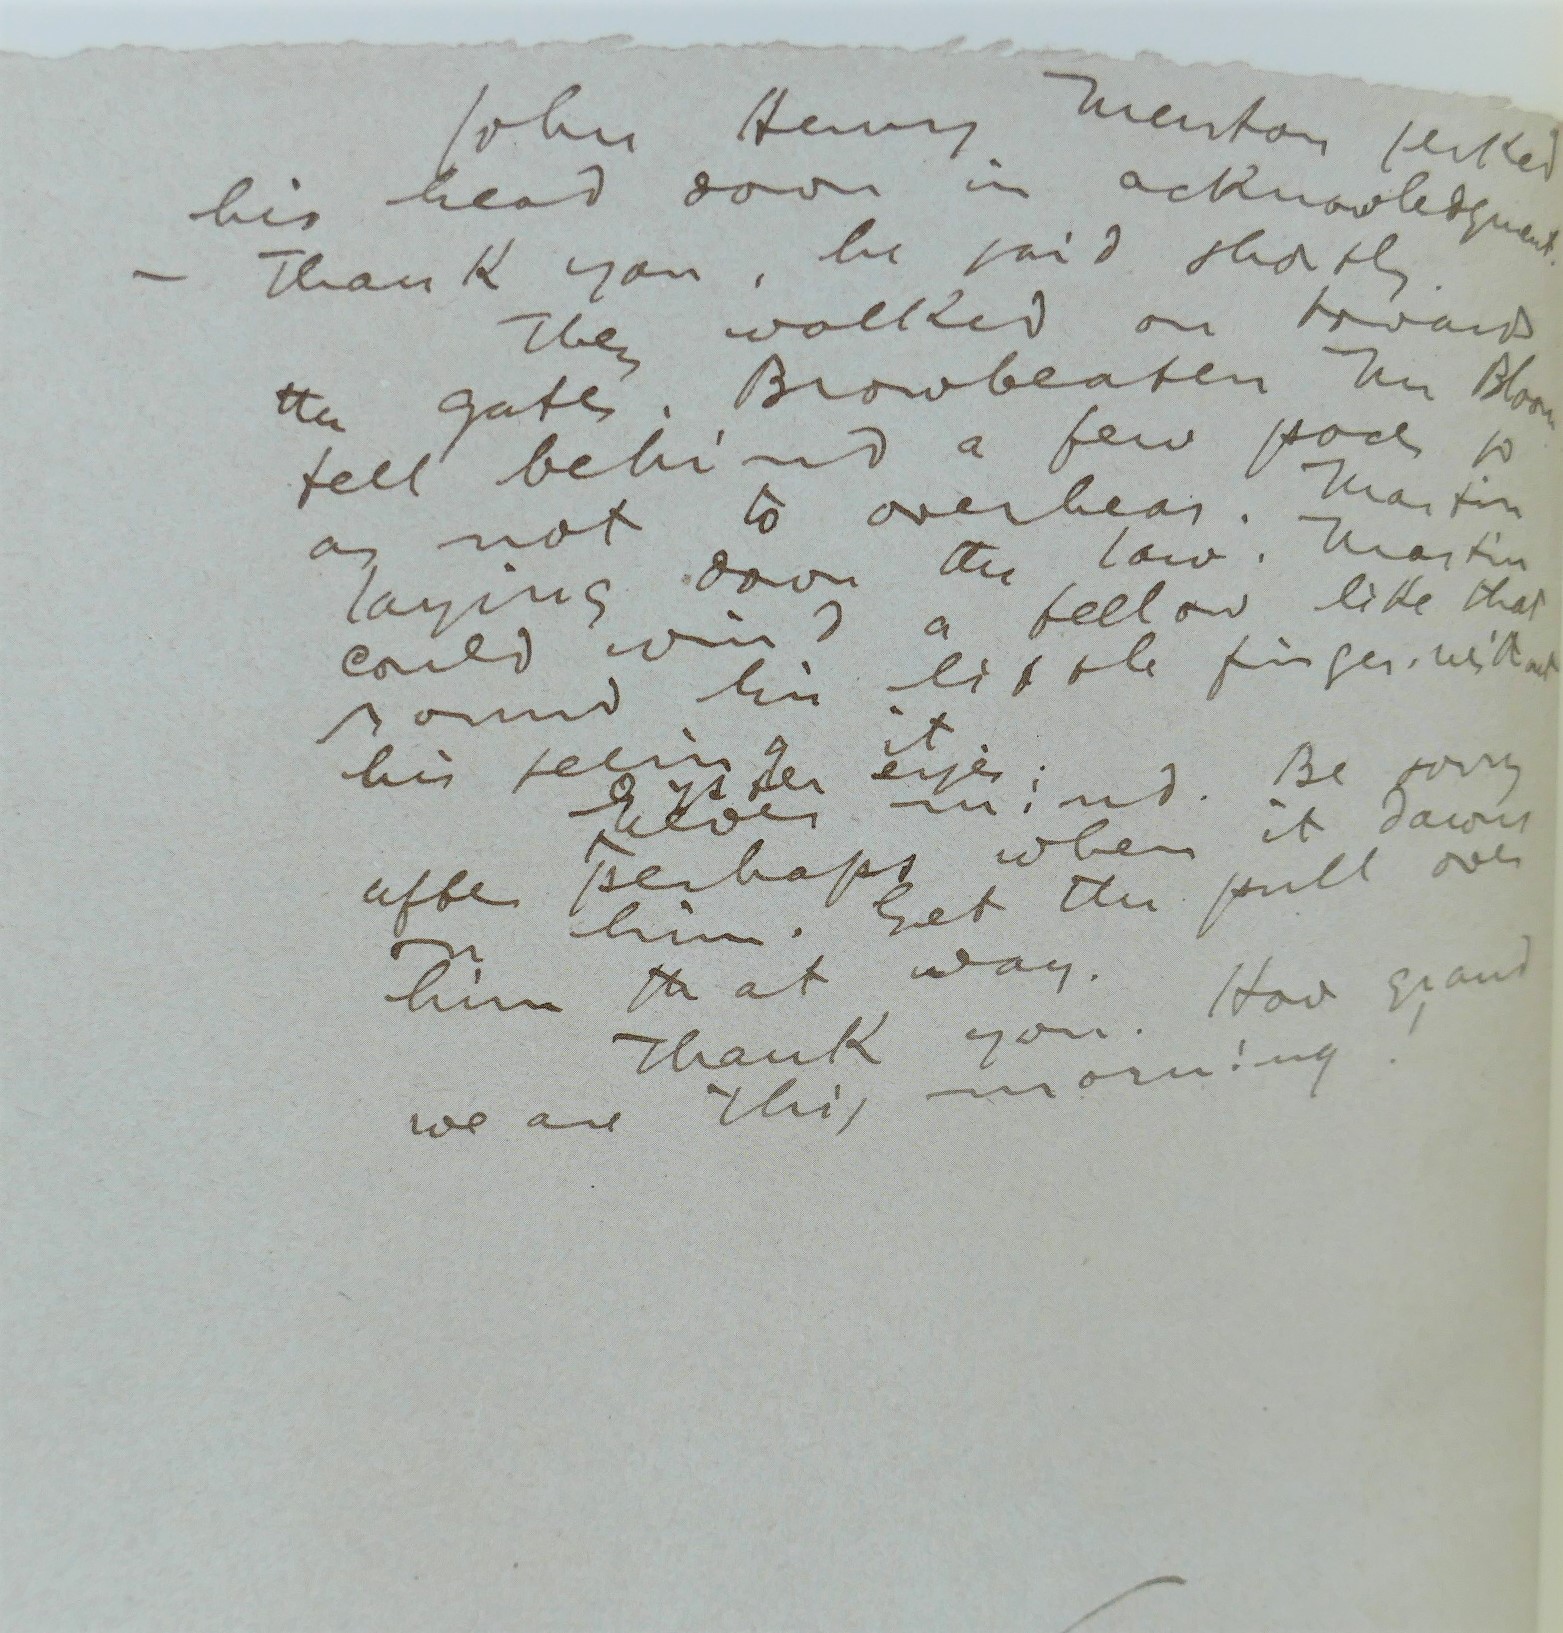 John Henry Menton jerked
his head down in acknowledgment.
— Thank you, he said shortly.
They walked on towards
the gates. Browbeaten Mr Bloom
fell behind a few paces so
as not to overhear. Martin
laying down the law. Martin
could wind a fellow like that
round his little finger without
his seeing it.
Oyster eyes.
Never mind. Be sorry
after perhaps when it dawns
on him. Get the pull over
him that way.
Thank you. How grand
we are this morning!